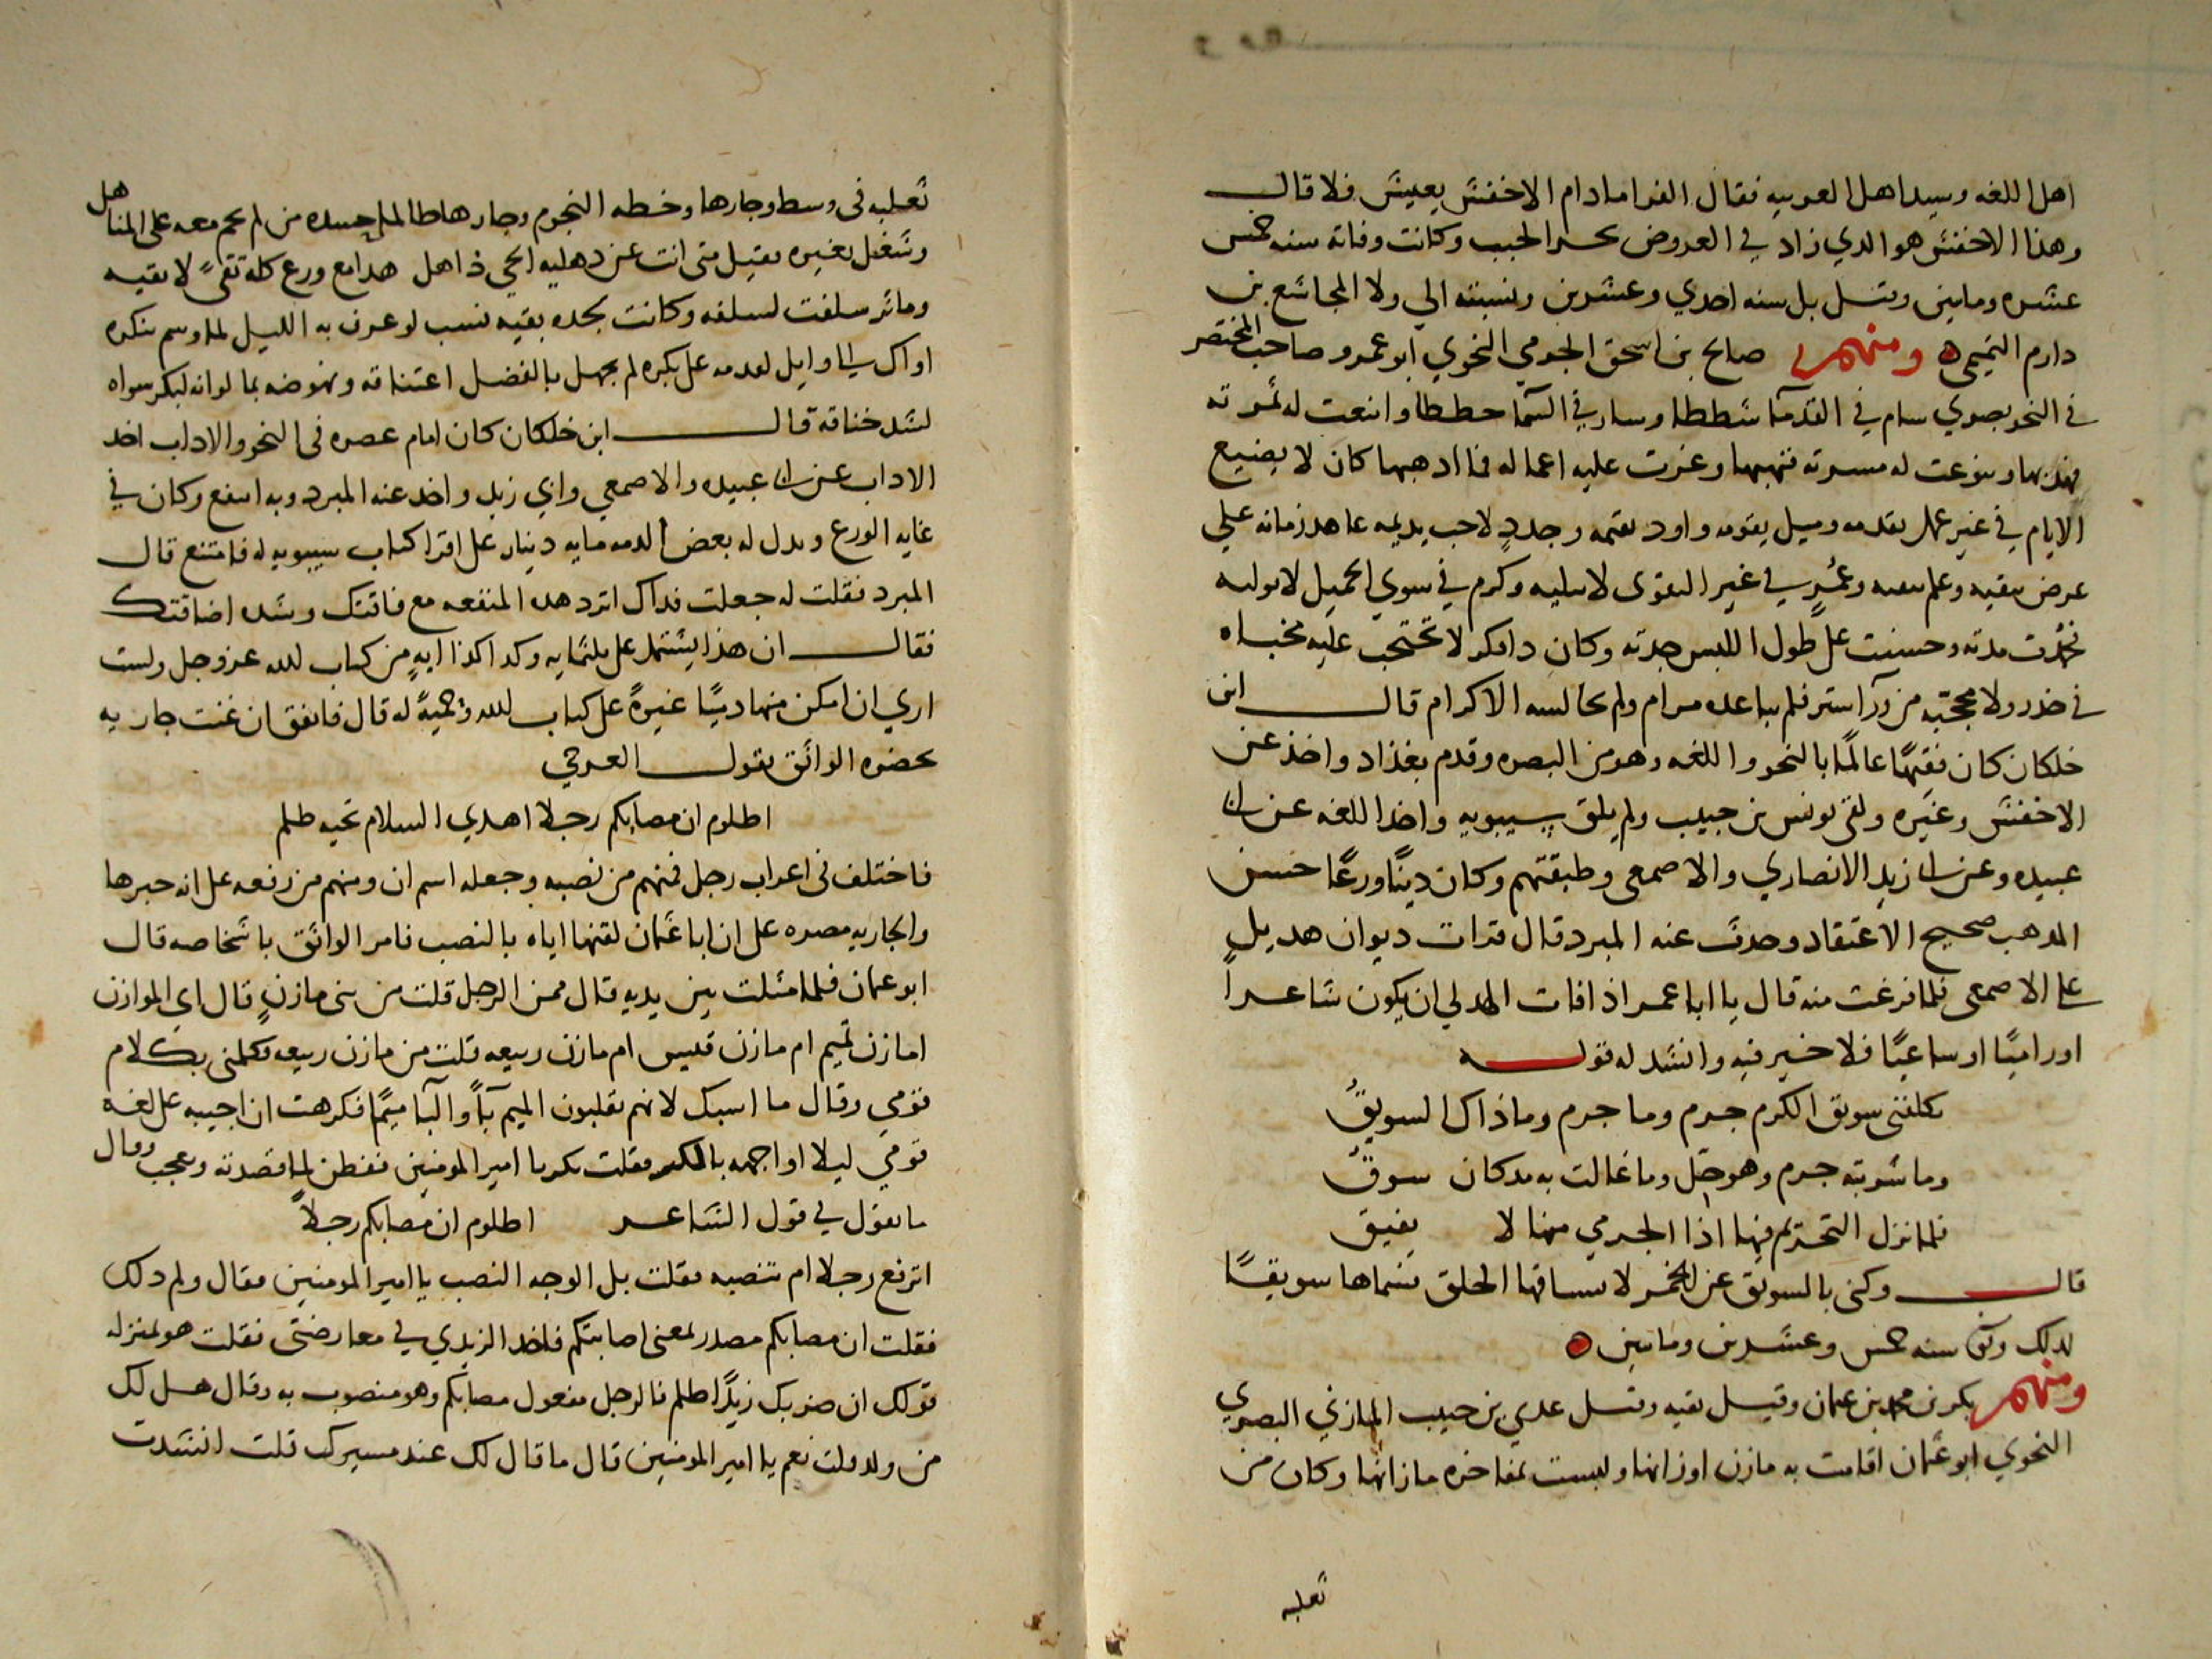 اهل اللغه وسيد اهل العربيه فقال الفرا مادام الاخفش يعيش فلا قال
وهذا الاخفش هو الذي زاد في العروض بحر الخبب وكانت وفاته سنه خمس
عشره وماتين وقيل بل سنه احدي وعشرين ونسبته الي ولا المجاشع بن
دارم التميمي ومنهم صالح بن اسحق الجرمي النحوي ابو عمرو صاحب المختصر
في النحو بصري سام في القدما شططا وسار في السما خططا واينعت له ثمرته
وتنوعت له مسرته وعزت عليه اعماله كان لا يضيع
الايام في غير عمل يقدمه وميل يقومه واود يقيمه وجدد لاحب يديمه عاهد زمانه علي
عرض يقيه وعلم وعمر في غير التقوى لا يبليه وكرم في سوي الجميل لا يوليه
مدته وحسنت على طول اللبس جدته وكان لا تحتجب عليه مخباه
في خدر ولا محجبه من ورآ ستر فلم يباعده مرام ولم يجالسه الا كرام قال ابن
خلكان كان فقيها عالما بالنحو واللغه وهو من البصره وقدم بغداد واخذ عن
الاخفش وغيره ولقي يونس بن حبيب ولم يلق سيبويه واخذ اللغه عن ابي
عبيده وعن ابي زيد الانصاري والاصمعي وطبقتهم وكان دينًا ورعًا حسن
المذهب صحيح الاعتقاد وحدث عنه المبرد قال قرات ديوان هذيل
على الاصمعي فلما فرغت منه قال يا ابا عمر اذا فات الهذلي ان يكون شاعرا
او راميًا او ساعيًا فلا خير فيه وانشد له قوله
تكلفني سويق الكرم جرم وما جرم وما ذاك السويق
وما شربته جرم وهو حل وما غالت به مذ كان سوق
فلما نزل التحريم فيها اذا الجرمي منها لا يفيق
قال وكنى بالسويق عن الخمر لانسياقها الحلق فسماها سويقًا
لذلك سنه خمس وعشرين وماتين
ومنهم بكر بن محمد بن عثمان وقيل بقيه وقيل عدي بن حبيب المازني البصري
النحوي ابو عثمان اقامت به مازن اوزانها ولبست بمفاخره مازانها وكان من
ثعلبه
ثعلبه في وسط وجارها وخطه النجوم وجارها طالما حسده من لم يحم معه على المناهل
وشغل بغيره فقيل متى انت عن ذهليه الحي ذاهل هذا مع ورع كله تقى لا تقيه
وماثر سلفت لسلفه وكانت بجده بقيه نسب لو عرف به الليل لما وسم بنكره
او اك وايل لقدمه على بكره لم يجهل بالفضل اعتناقه ونهوضه بما لو انه لبكر سواه
لشد خناقه قال ابن خلكان كان امام عصره في النحو والاداب اخذ
الاداب عن ابي عبيده والاصمعي وابي زيد واخذ عنه المبرد وبه انتفع وكان في
غايه الورع وبذل له بعض الذمه مايه دينار على اقرا كتاب سيبويه له فامتنع قال
المبرد فقلت له جعلت فداك اترد هذه المنفعه مع فاقتك وشده اضاقتك
فقال ان هذا يشتمل على ثلثمايه وكذا كذا ايه من كتاب الله عز وجل ولست
اري ان امكن منها ذميًا غيرةً على كتاب الله وحميةً له قال فاتفق ان غنت جاريه
بحضره الواثق بقول العرجي
اظلوم ان مصابكم رجلا اهدي السلام تحيه ظلم
فاختلف في اعراب رجل فمنهم من نصبه وجعله اسم ان ومنهم من رفعه على انه خبرها
والجاريه مصره على ان ابا عثمان لقنها اياه بالنصب فامر الواثق باشخاصه قال
ابو عثمان فلما مثلت بين يديه قال ممن الرجل قلت من بني مازن قال اي الموازن
امازن تميم ام مازن قيس ام مازن ربيعه قلت من مازن ربيعه فكلمني بكلام
قومي وقال ما اسبك لانهم يقلبون الميم بآً والبا ميمًا فكرهت ان اجيبه على لغه
قومي ليلا اواجهه بالمكر فقلت بكر يا امير المومنين ففطن لما قصدته وعجب وقال
ما تقول في قول الشاعر اظلوم ان مصابكم رجلاً
اترفع رجلا ام تنصبه فقلت بل الوجه النصب يا امير المومنين فقال ولم ذلك
فقلت ان مصابكم مصدر بمعنى اصابتكم فاخذ اليزيدي في معارضتي فقلت هو بمنزله
قولك ان ضربك زيدًا ظلم فالرجل مفعول مصابكم وهو منصوب به وقال هل لك
من ولد قلت نعم يا امير المومنين قال ما قال لك عند مسيرك قلت انشدت